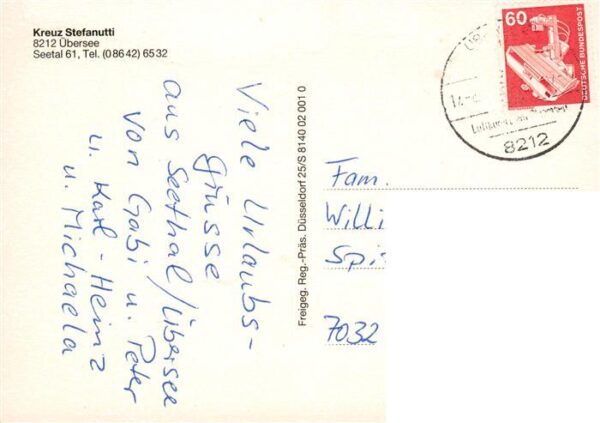 Kreuz Stefanutti
8212 Übersee
Seetal 61, Tel. (08642) 6532
Viele Urlaubs-
grüsse
aus Seethal/Übersee
von Gabi u. Peter
u. Karl-Heinz
u. Michaela
Freigeg. Reg.-Präs. Düsseldorf 25/S 8140 02 001 0
60
DEUTSCHE BUNDESPOST
8212
Fam.
Willi
Spi
7032